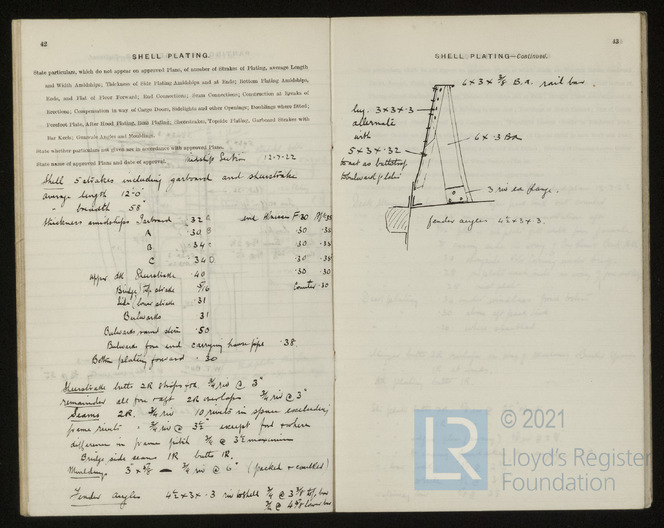 42
SHELL PLATING.
State particulars, which do not appear on approved Plans, of number of Strakes of Plating, average Length
and Width Amidships; Thickness of Side Plating Amidships and at Ends; Bottom Plating Amidships,
Ends, and Flat of Floor Forward; End Connections; Seam Connections; Construction at Breaks of
Erections; Compensation in way of Cargo Doors, Sidelights and other Openings; Doublings where fitted;
Forefoot Plate, After Hood Plating, Boss Plating; Sheerstrakes, Topside Plating, Garboard Strakes with
Bar Keels; Gunwale Angles and Mouldings.
State whether particulars not given are in accordance with approved Plans.
State name of approved Plans and date of approval. Midship Section 12-7-22
Shell 5 strakes including garboard and sheerstrake
average length 12'0"
" breadth 58"
thickness amidships Garboard .32 end F.30
A .30
B .34 .30
C .34 .30
upper dk Sheerstrake .40 .30
Bridge side strake 5/16 Counter .30
side lower strake .31
Bulwarks .31
Bulwarks round stern .50
Bulwarks fore end carrying hawse pipe .38
Bottom plating forward .30
Sheerstrake butts 2R straps 3/4 riv @ 3"
remainder all fore & aft 2R overlaps 3/4 riv @ 3"
Seams 2R. 3/4 riv 10 rivets in space excluding
frame rivets 3/4 riv @ 3½" except fwd where
difference in frame pitch 3/4 @ 3½ maximum
Bridge side seams 1R butts 1R.
Moulding 3/4 riv @ 6" (packed & caulked)
Fender angles 4½ x 3 x .3 riv to shell
43
SHELL PLATING—Continued.
6 x 3 x 3/8 B.a. rail bar
lug. 3 x 3 x .3
alternate
with
5 x 3 x .32
to act as buttstrap
to bulward plates
6 x 3 BA
3 riv ea flange.
fender angles 4½ x 3 x 3.
LR
© 2021
Lloyd's Register
Foundation